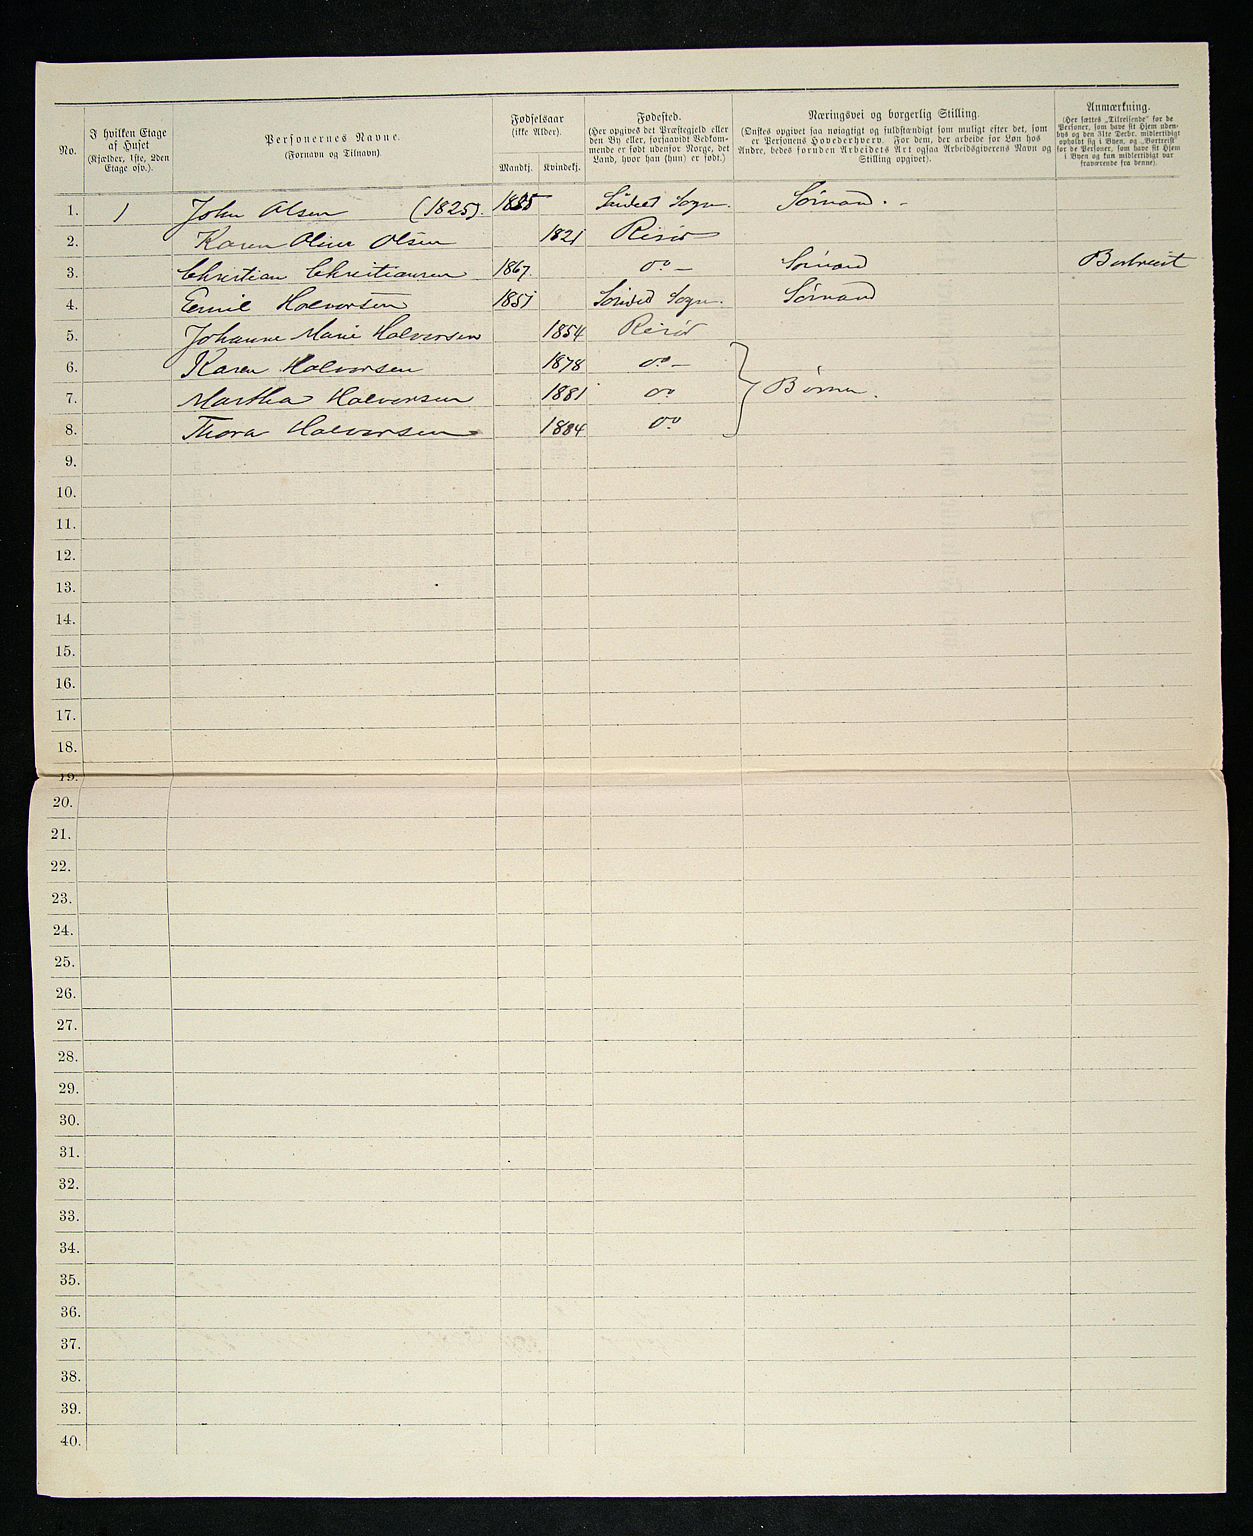 No.
I hvilken Etage af Huset (Kjælder, 1ste, 2den Etage osv.).
Personernes Navne. (Fornavn og Tilnavn).
Fødselsaar (ikke Alder).
Mandkj. Kvindekj.
Fødested. (Her opgives det Præstegjeld eller den By eller, forsaavidt Vedkommende er født udenfor Norge, det Land, hvor han (hun) er født.)
Næringsvei og borgerlig Stilling. (Ønskes opgivet saa nøiagtigt og fuldstændigt som muligt efter det, som er Personens Hovederhverv. For dem, der arbeide for Løn hos Andre, bedes foruden Arbeidets Art ogsaa Arbeidsgiverens Navn og Stilling opgivet).
Anmærkning. (Her sættes „Tilreisende" for de Personer, som have sit Hjem udenbys og den 31te Decbr. midlertidigt opholdt sig i Byen, og „Bortreist" for de Personer, som have sit Hjem i Byen og kun midlertidigt var fraværende fra denne).
1. 1 John Olsen (1825). 1835 Sogn. Sømand.
2. Karen Oline Olsen 1821 Risør
3. Christian Christiansen 1867. do- Sømand Bortreist
4. Emil Halvorsen 1851 Søndeled Sogn. Sømand
5. Johanne Marie Halvorsen 1854 Risør
6. Karen Halvorsen 1878 do-
7. Martha Halvorsen 1881 do } Børn.
8. Thora Halvorsen 1884 do
9.
10.
11.
12.
13.
14.
15.
16.
17.
18.
19.
20.
21.
22.
23.
24.
25.
26.
27.
28.
29.
30.
31.
32.
33.
34.
35.
36.
37.
38.
39.
40.